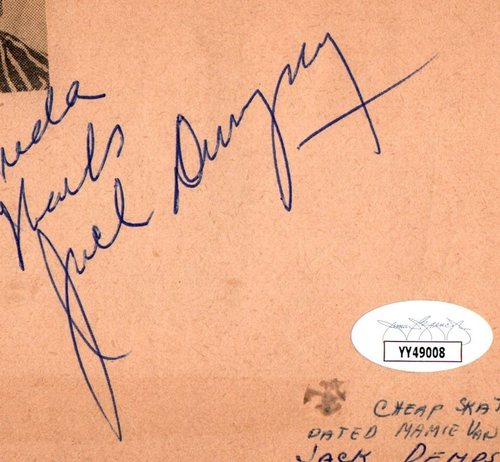 Thanks
Jack Dempsey
YY49008
CHEAP SKAT
DATED MAMIE VAN
JACK DEMPS